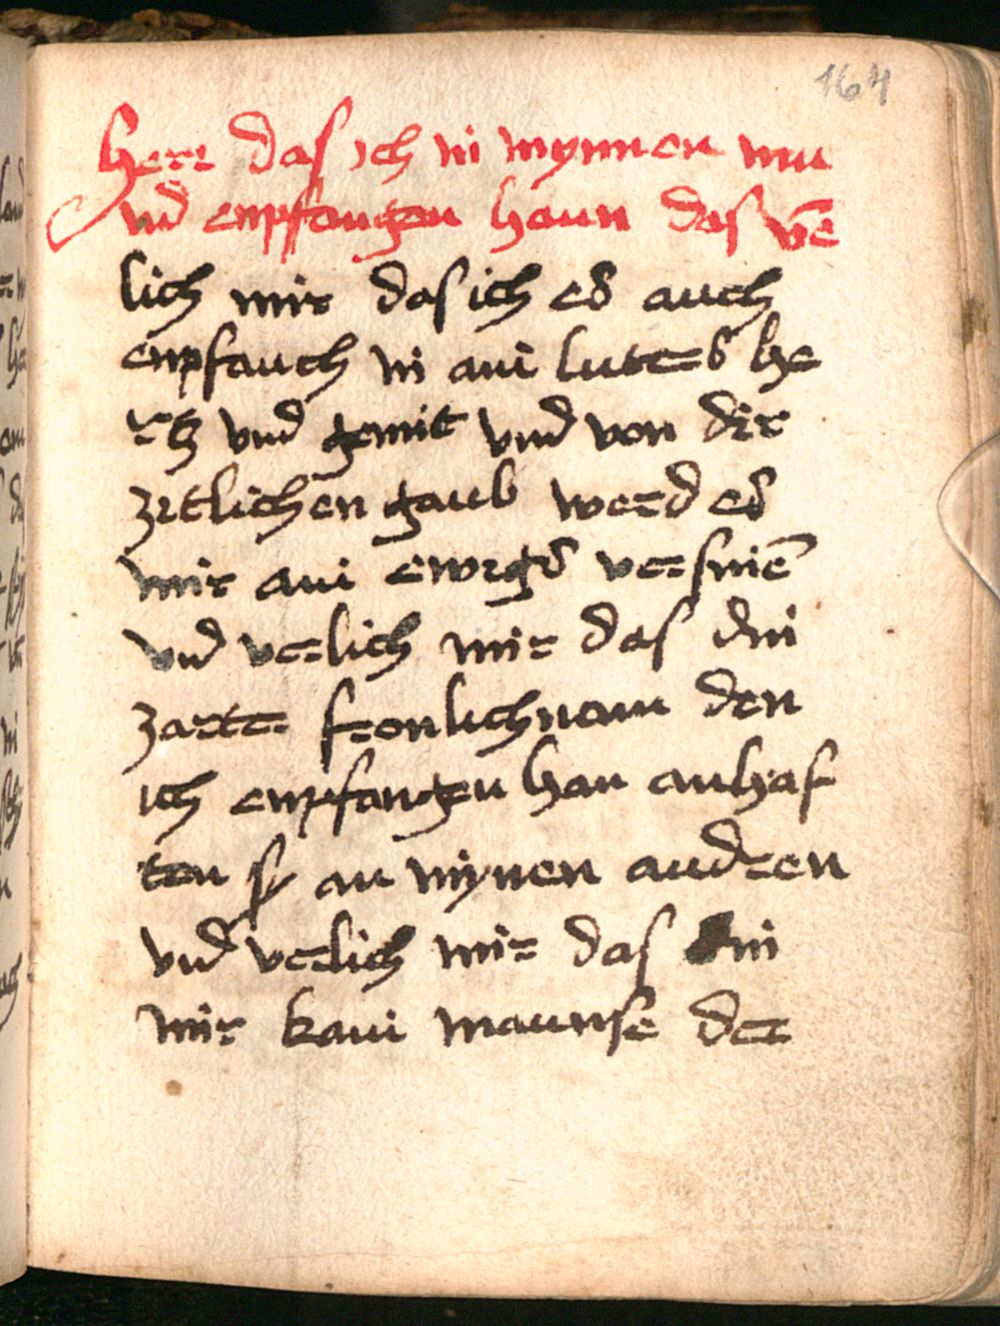 164
Herr das ich in mynnen mu
nd enpfangen haun das v̄e
lich mir das ich es auch
enpfauch in ain luters he
rcz vnd gemit vnd von dir
zitlichen gaub werd es
mir ain ewiger versnien̄
vnd verlich mir das din
zarter fronlichnam den
ich enpfangen han anhaf
ten sy an mynen audren
vnd verlich mir das in
mir kain maunse der